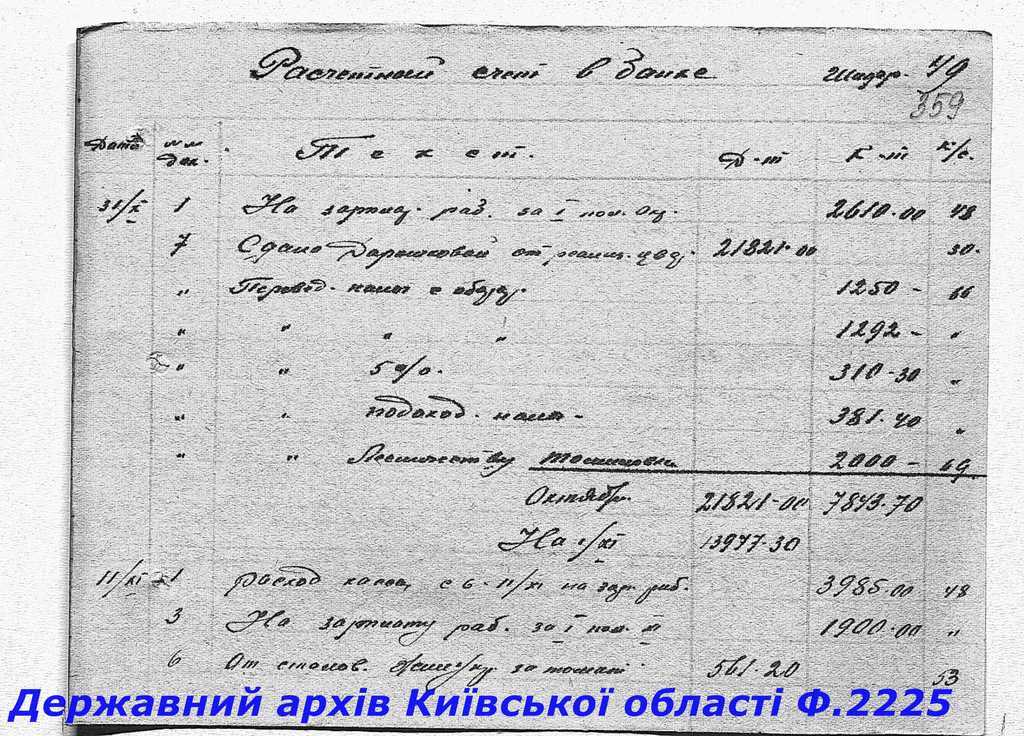 Расчетный счет в Банке 49
359
Дата №№ док. Текст. Д-т К-т к/с.
31/X 1 На зарплат. раб. за I пол. Окт. 2610.00 48
7 Сдано от реализ. 21821.00 30.
" Перевед. налог с 1250 - 66
" " " " 1292 - "
" " 5%. 310-30 "
" " подоход. налог - 381.40 "
" " Лесничеству 2000 - 69.
Октябрь 21821-00 7843.70
На 1/XI 13977.30
11/XI 1 расход касса, с 6-11/XI на зар. раб. 3985.00 48
3 На зарплату раб. за I пол. XI 1900.00 "
6 От столов. за томат 561.20 53
Державний архів Київської області Ф.2225